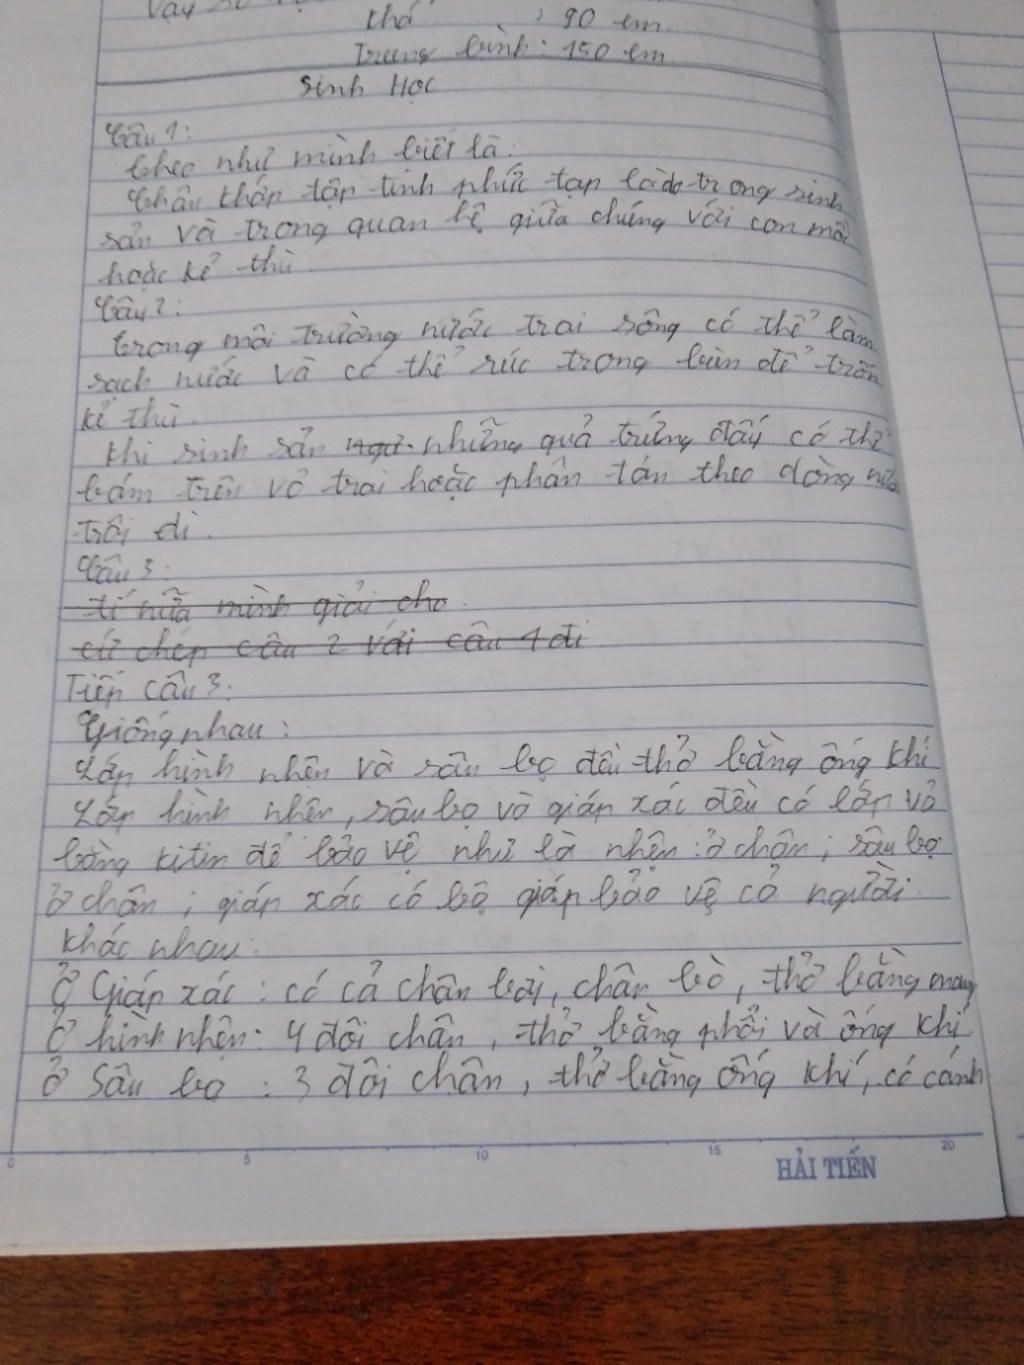 Vậy số
khá : 90 em
Trung bình : 150 em
Sinh Học
Câu 1:
theo như mình biết là:
Chân khớp tập tính phức tạp là do trong sinh
sản và trong quan hệ giữa chúng với con mồi
hoặc kẻ thù.
Câu 2:
trong môi trường nước trai sông có thể làm
sạch nước và có thể rúc trong bùn để trốn
kẻ thù.
khi sinh sản những quả trứng đấy có thể
bám trên vỏ trai hoặc phân tán theo dòng nước
trôi đi.
Câu 3:
tí nữa mình giải cho.
cứ chép câu 2 với câu 1 đi
Tiếp câu 3:
Giống nhau:
Lớp hình nhện và sâu bọ đều thở bằng ống khí
Lớp hình nhện, sâu bọ và giáp xác đều có lớp vỏ
bằng kitin để bảo vệ như là nhện: ở chân; sâu bọ
ở chân; giáp xác có bộ giáp bảo vệ cả người.
Khác nhau:
Ở Giáp xác: có cả chân bơi, chân bò, thở bằng mang
Ở hình nhện: 4 đôi chân, thở bằng phổi và ống khí
Ở Sâu bọ : 3 đôi chân, thở bằng ống khí, có cánh
0 5 10 15 20
HẢI TIẾN